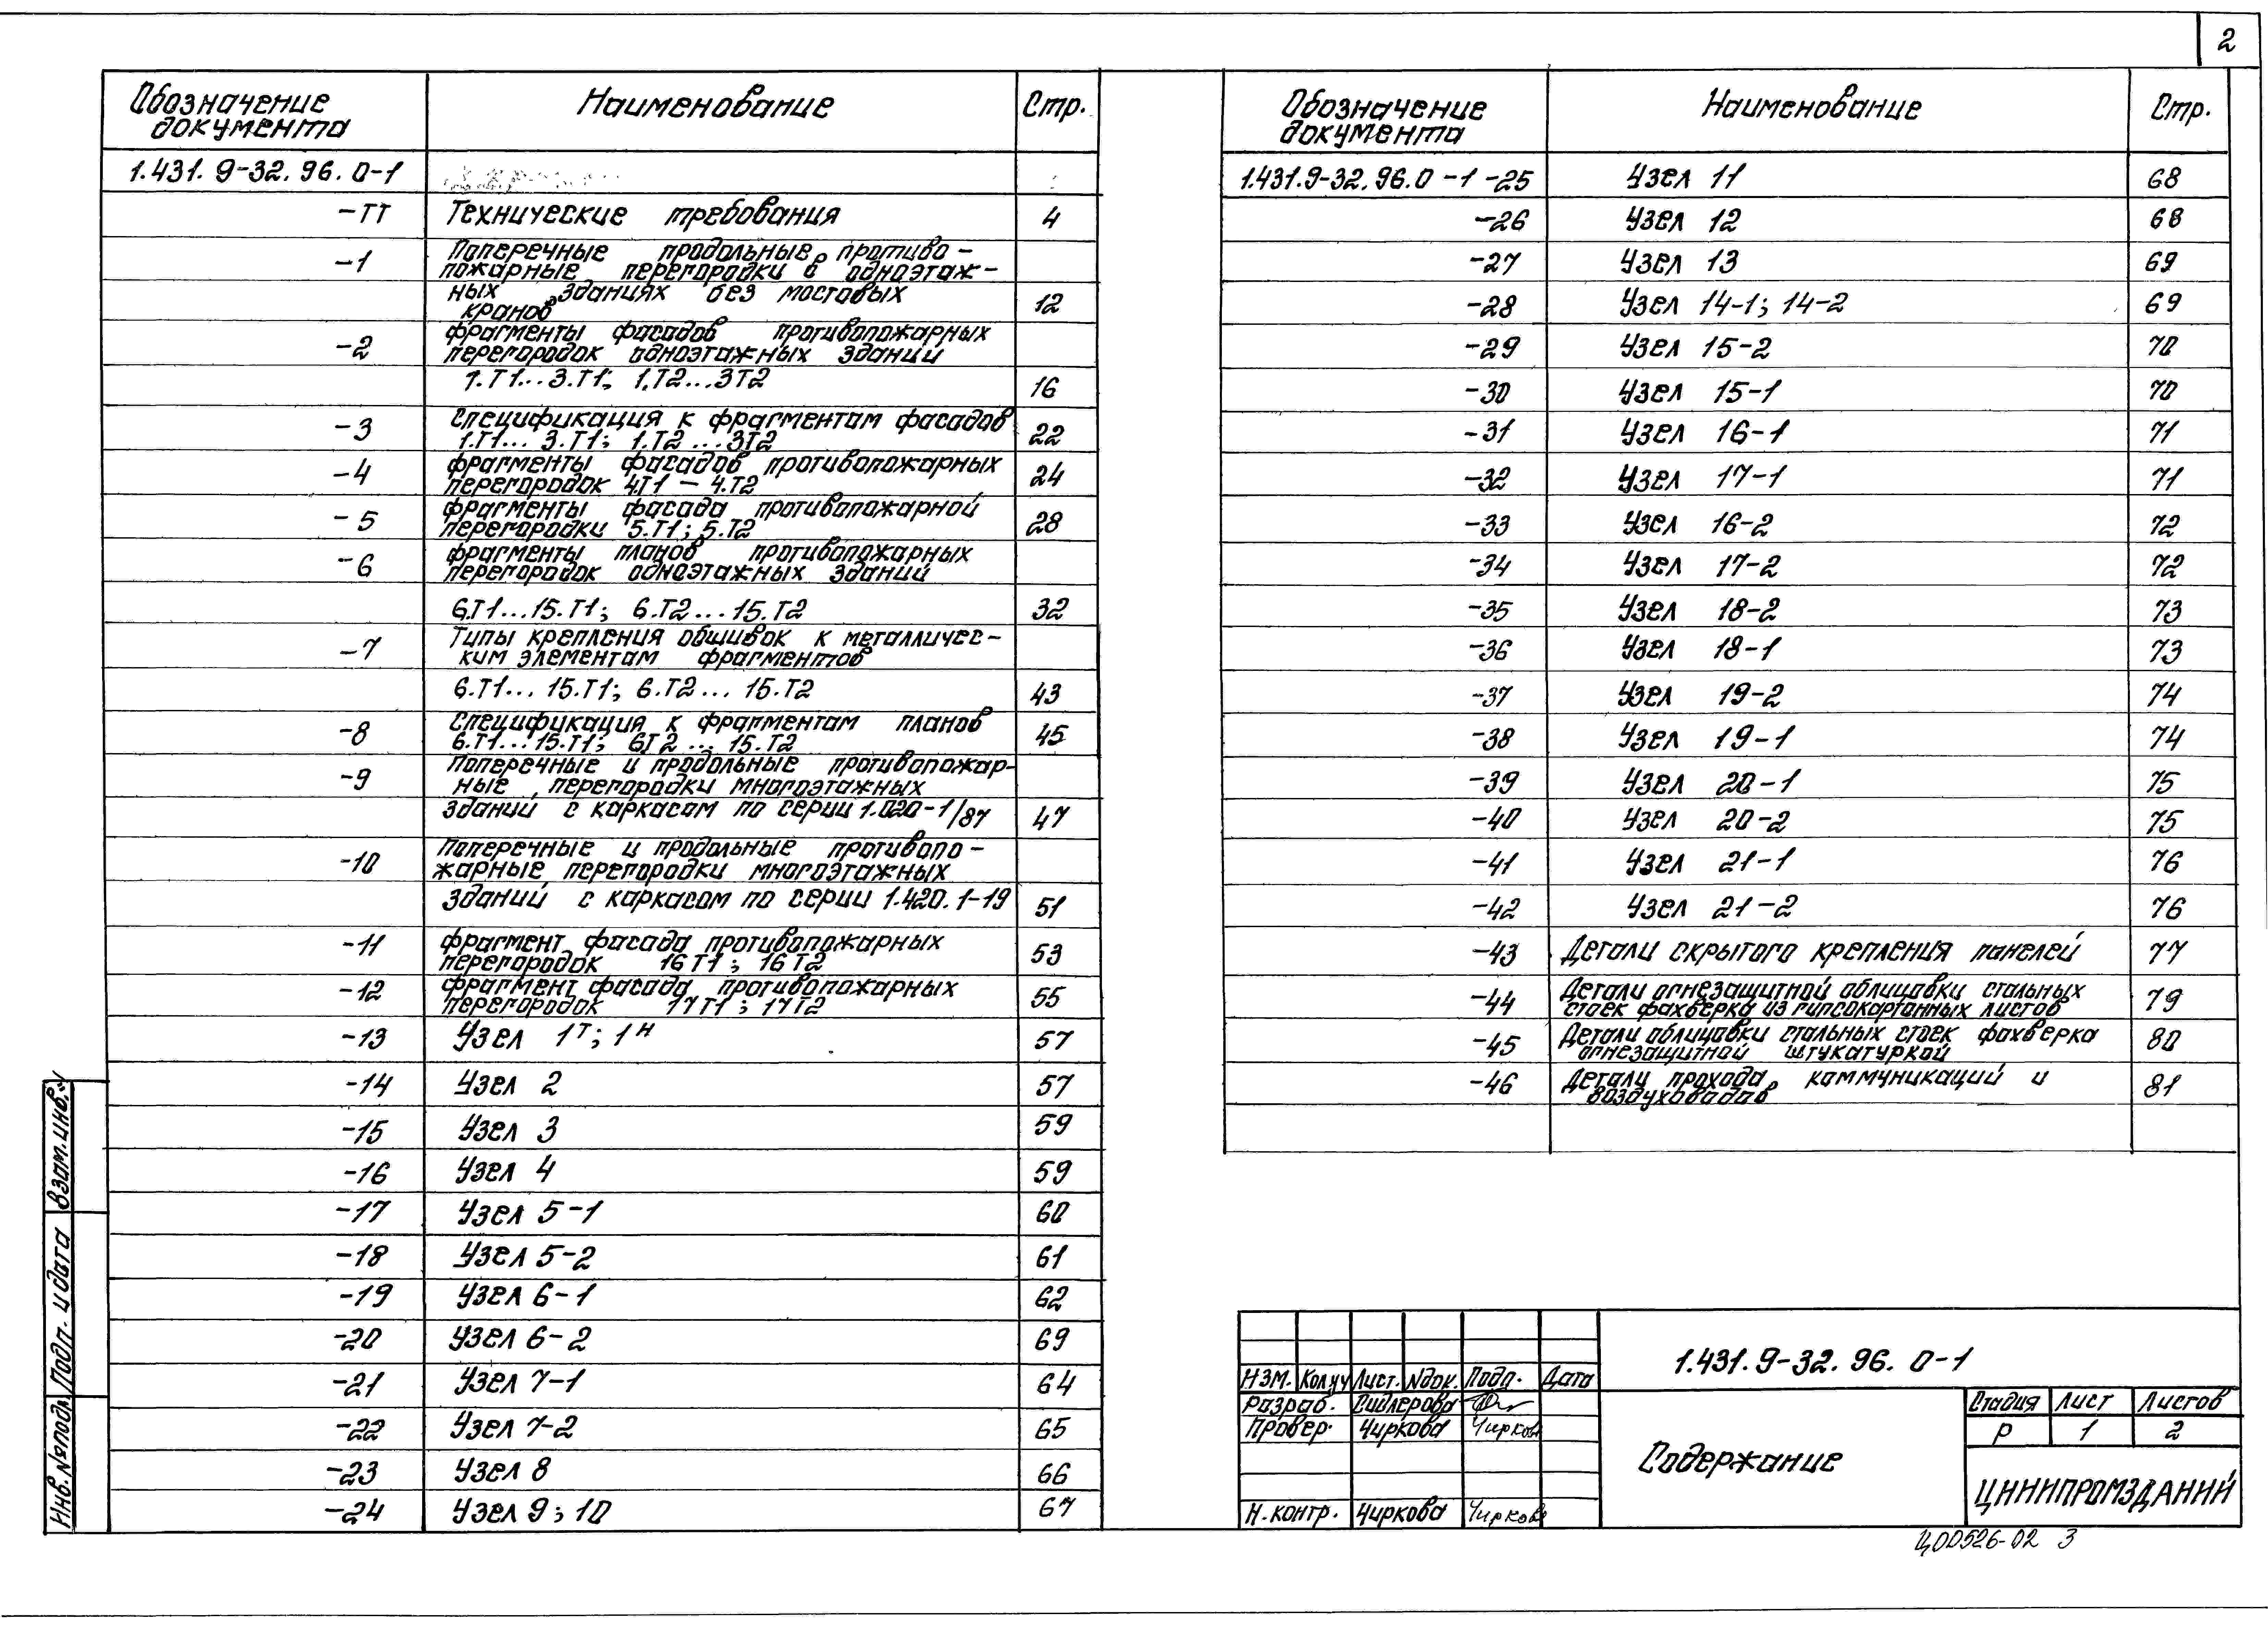 2
Обозначение документа Наименование Стр.
1.431.9-32.96.0-1
-ТТ Технические требования 4
-1 Поперечные продольные противо-
пожарные перегородки в одноэтаж-
ных зданиях без мостовых
кранов 12
-2 фрагменты фасадов противопожарных
перегородок одноэтажных зданий
1.Т1...3.Т1; 1.Т2...3Т2 16
-3 Спецификация к фрагментам фасадов
1.Т1... 3.Т1; 1.Т2 ...3Т2 22
-4 фрагменты фасадов противопожарных
перегородок 4Т1 – 4.Т2 24
-5 фрагменты фасада противопожарной
перегородки 5.Т1; 5.Т2 28
-6 фрагменты планов противопожарных
перегородок одноэтажных зданий
6.Т1...15.Т1; 6.Т2...15.Т2 32
-7 Типы крепления обшивок к металличес-
ким элементам фрагментов
6.Т1... 15.Т1; 6.Т2... 15.Т2 43
-8 Спецификация к фрагментам планов
6.Т1...15.Т1; 6Т2 ... 15.Т2 45
-9 Поперечные и продольные противопожар-
ные перегородки многоэтажных
зданий с каркасом по серии 1.020-1/87 47
-10 Поперечные и продольные противопо-
жарные перегородки многоэтажных
зданий с каркасом по серии 1.420.1-19 51
-11 фрагмент фасада противопожарных
перегородок 16Т1; 16Т2 53
-12 фрагмент фасада противопожарных
перегородок 17Т1; 17Т2 55
-13 Узел 1Т; 1Н 57
-14 Узел 2 57
-15 Узел 3 59
-16 Узел 4 59
-17 Узел 5-1 60
-18 Узел 5-2 61
-19 Узел 6-1 62
-20 Узел 6-2 69
-21 Узел 7-1 64
-22 Узел 7-2 65
-23 Узел 8 66
-24 Узел 9; 10 67
Обозначение документа Наименование Стр.
1.431.9-32.96.0-1 -25 Узел 11 68
-26 Узел 12 68
-27 Узел 13 69
-28 Узел 14-1; 14-2 69
-29 Узел 15-2 70
-30 Узел 15-1 70
-31 Узел 16-1 71
-32 Узел 17-1 71
-33 Узел 16-2 72
-34 Узел 17-2 72
-35 Узел 18-2 73
-36 Узел 18-1 73
-37 Узел 19-2 74
-38 Узел 19-1 74
-39 Узел 20-1 75
-40 Узел 20-2 75
-41 Узел 21-1 76
-42 Узел 21-2 76
-43 Детали скрытого крепления панелей 77
-44 Детали огнезащитной облицовки стальных
стоек фахверка из гипсокартонных листов 79
-45 Детали облицовки стальных стоек фахверка
огнезащитной штукатуркой 80
-46 Детали прохода коммуникаций и
воздуховодов 81
Взам.инв.№
Подп. и дата
Инв.№подл.
Изм. Кол.уч Лист. Nдок. Подп. Дата
Разраб. Сидлерова
Провер. Чиркова Чирков
Н.контр. Чиркова Чирков
1.431.9-32.96.0-1
Содержание
Стадия Лист Листов
Р 1 2
ЦНИИПРОМЗДАНИЙ
Ц00526-02 3